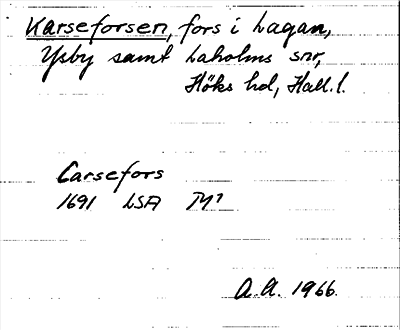 Karseforsen, fors i Lagan,
Ysby samt Laholms snr,
Höks hd, Hall. l.
Carsefors
1691 LSA M1
A.A. 1966.